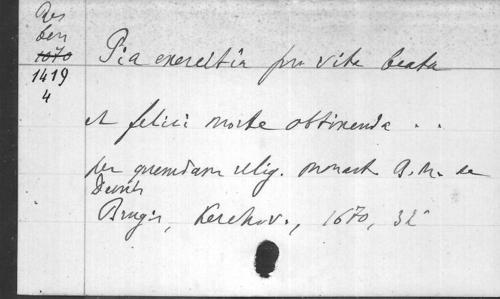 Res
ben
1070
1419
4
Pia exercitia pro vita beata
et felici morte obtinenda . .
per quemdam relig. monast. B. M. de
Dunis
Brugis, Kerchov., 1670, 32°